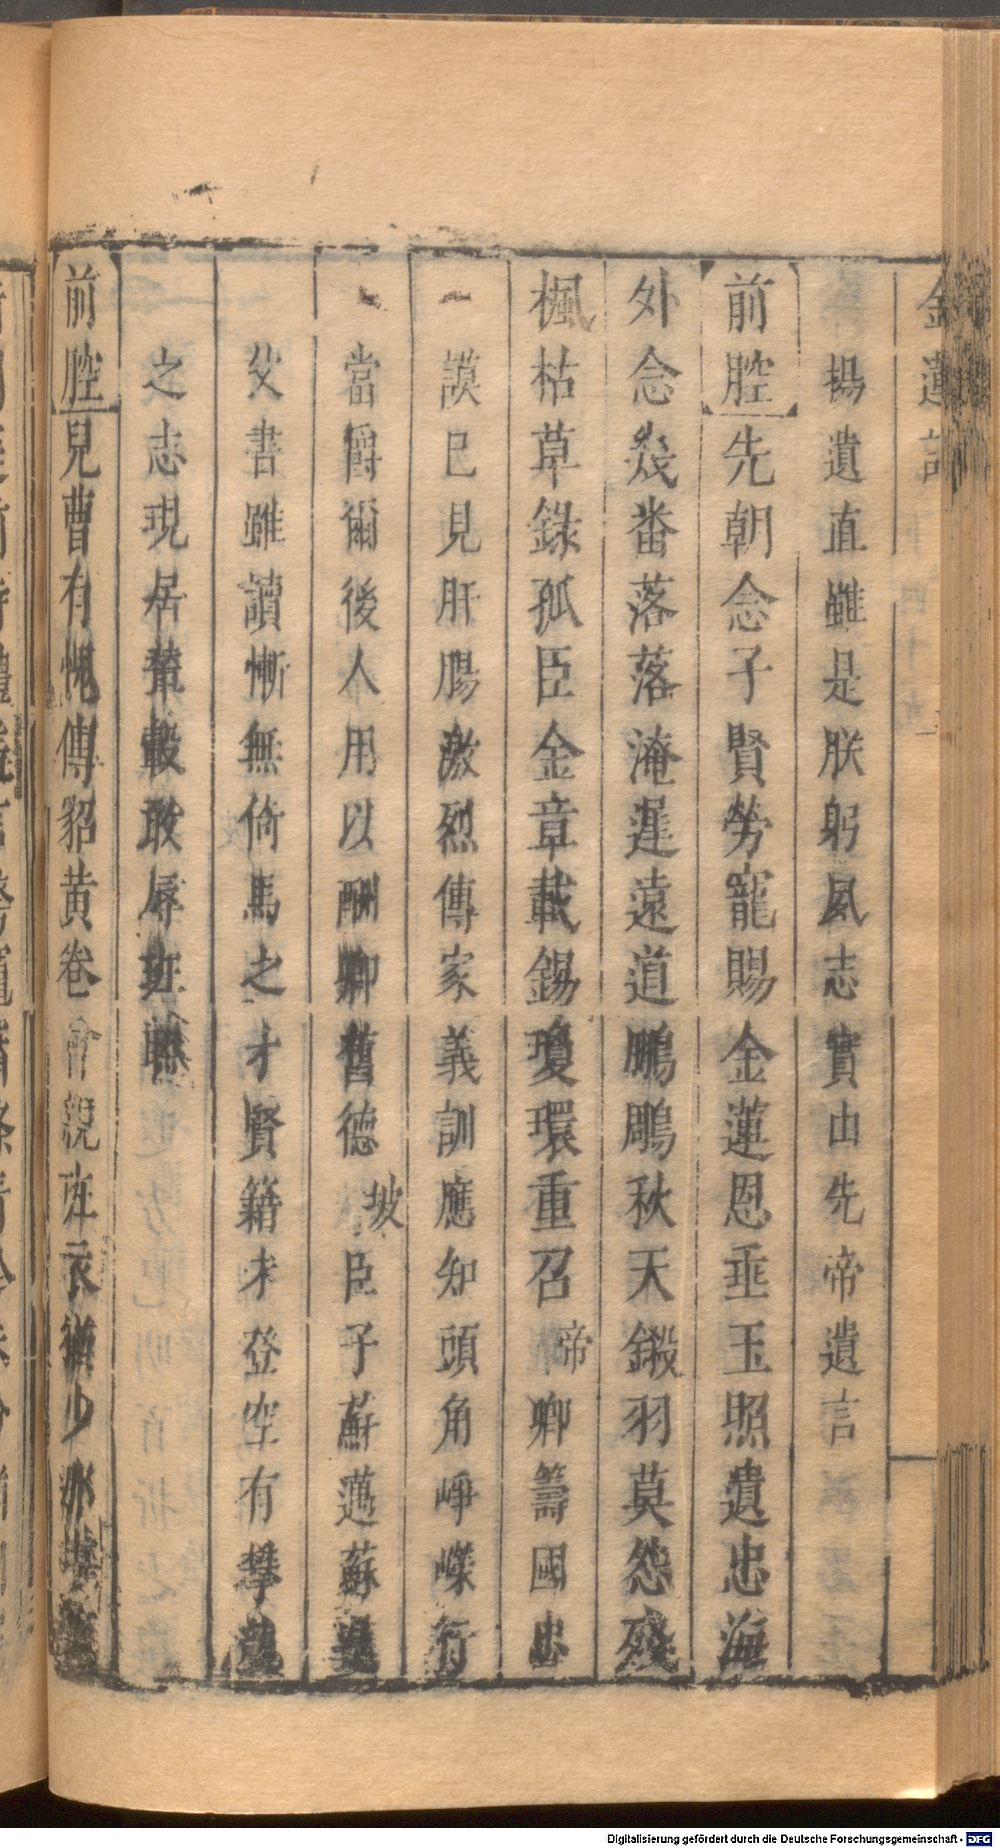 金蓮記
楊遺直雖是朕躬夙志實由先帝遺言
前腔先朝念子賢勞寵賜金蓮恩垂玉照遺忠海
外念幾番落落淹遲遠道鵬鵰秋天鎩羽莫怨殘
楓枯草錄孤臣金章載錫瓊環重召 帝卿籌國忠
謨已見肝腸激烈傳家義訓應知頭角崢嶸行
當爵爾後人用以酬卿舊德 坡臣子蘇邁蘇
父書雖讀慚無倚馬之才賢籍未登空有
之志現居輦轂敢辱班聯
前腔兒曹有愧傳貂黃卷 親班衣 少
Digitalisierung gefördert durch die Deutsche Forschungsgemeinschaft - DFG